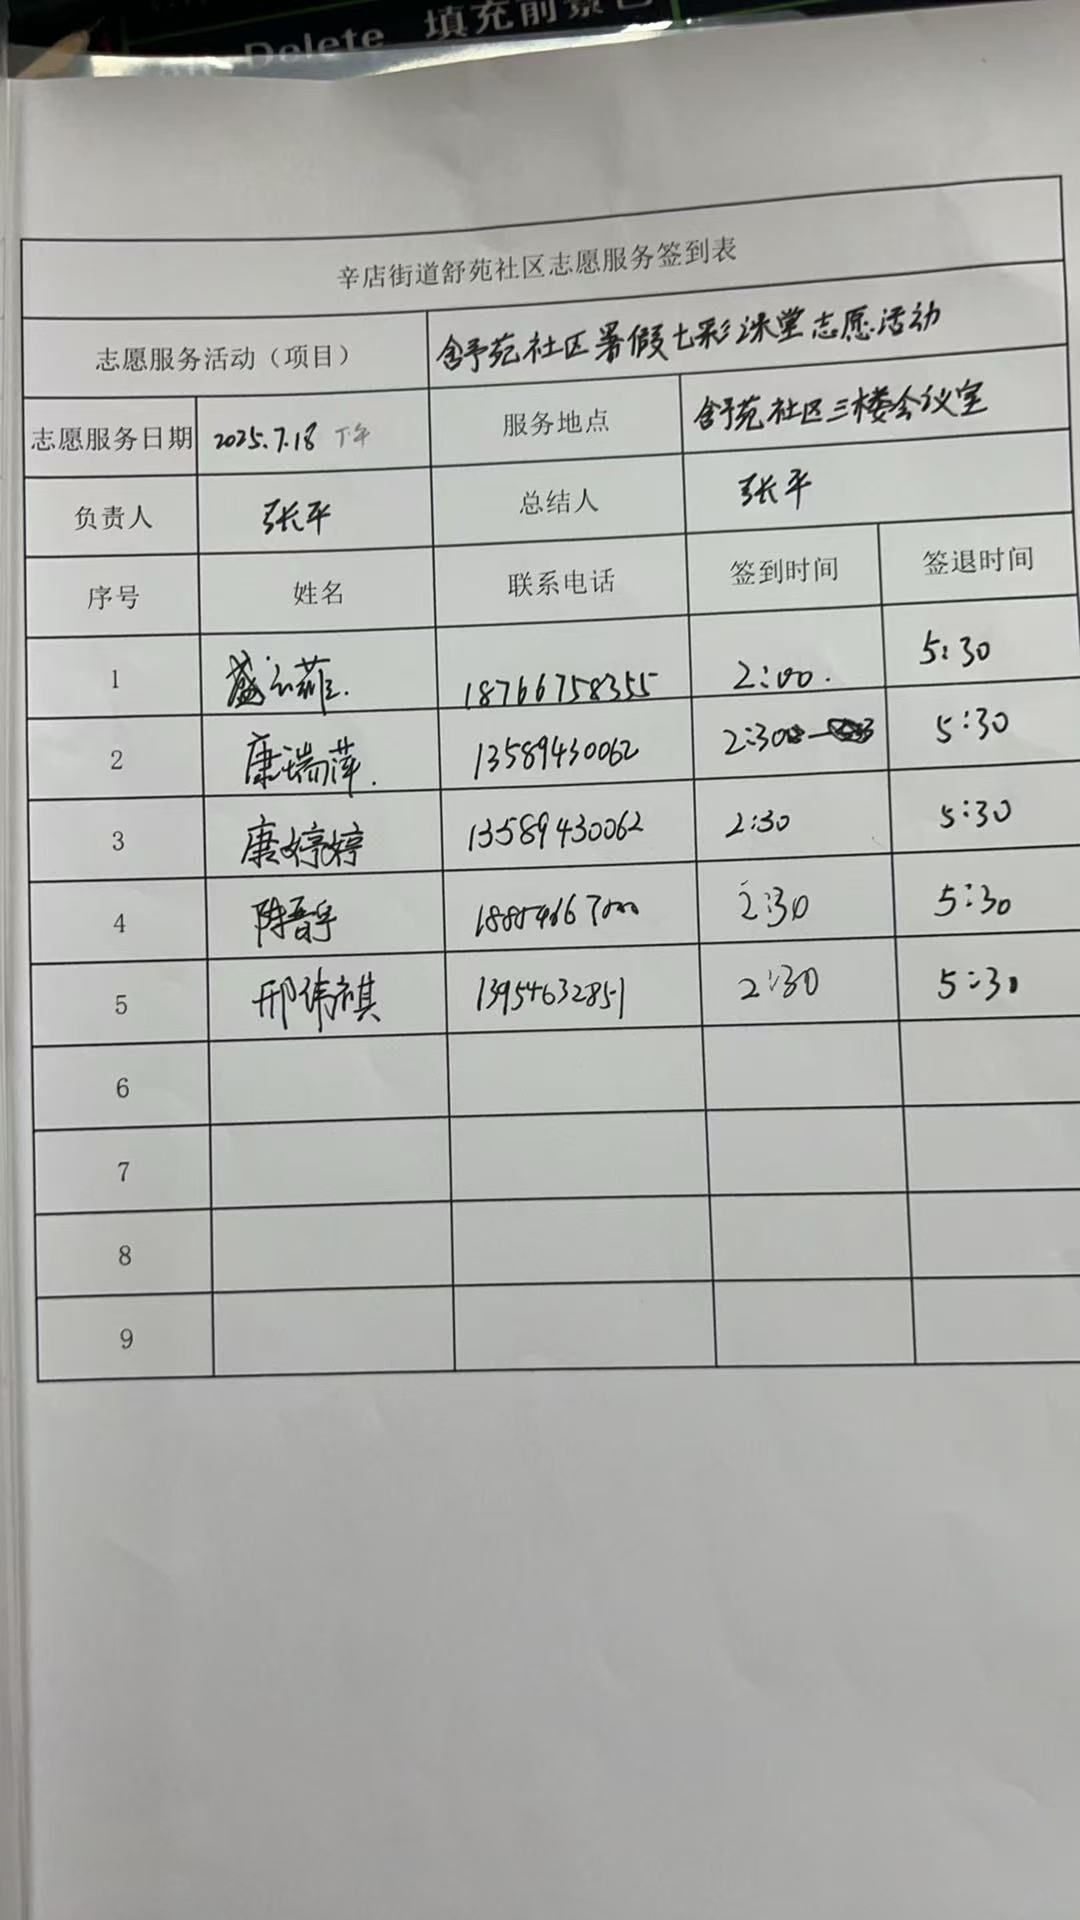 Delete 填充前景色
辛店街道舒苑社区志愿服务签到表
志愿服务活动（项目） 舒苑社区暑假七彩课堂志愿活动
志愿服务日期 2025.7.18 下午 服务地点 舒苑社区三楼会议室
负责人 张平 总结人 张平
序号 姓名 联系电话 签到时间 签退时间
1 盛云菲. 18766758355 2:00. 5:30
2 康瑞萍. 13589430062 2:30 5:30
3 康婷婷 13589430062 2:30 5:30
4 2:30 5:30
5 邢伟祺 13954632851 2:30 5:30
6
7
8
9